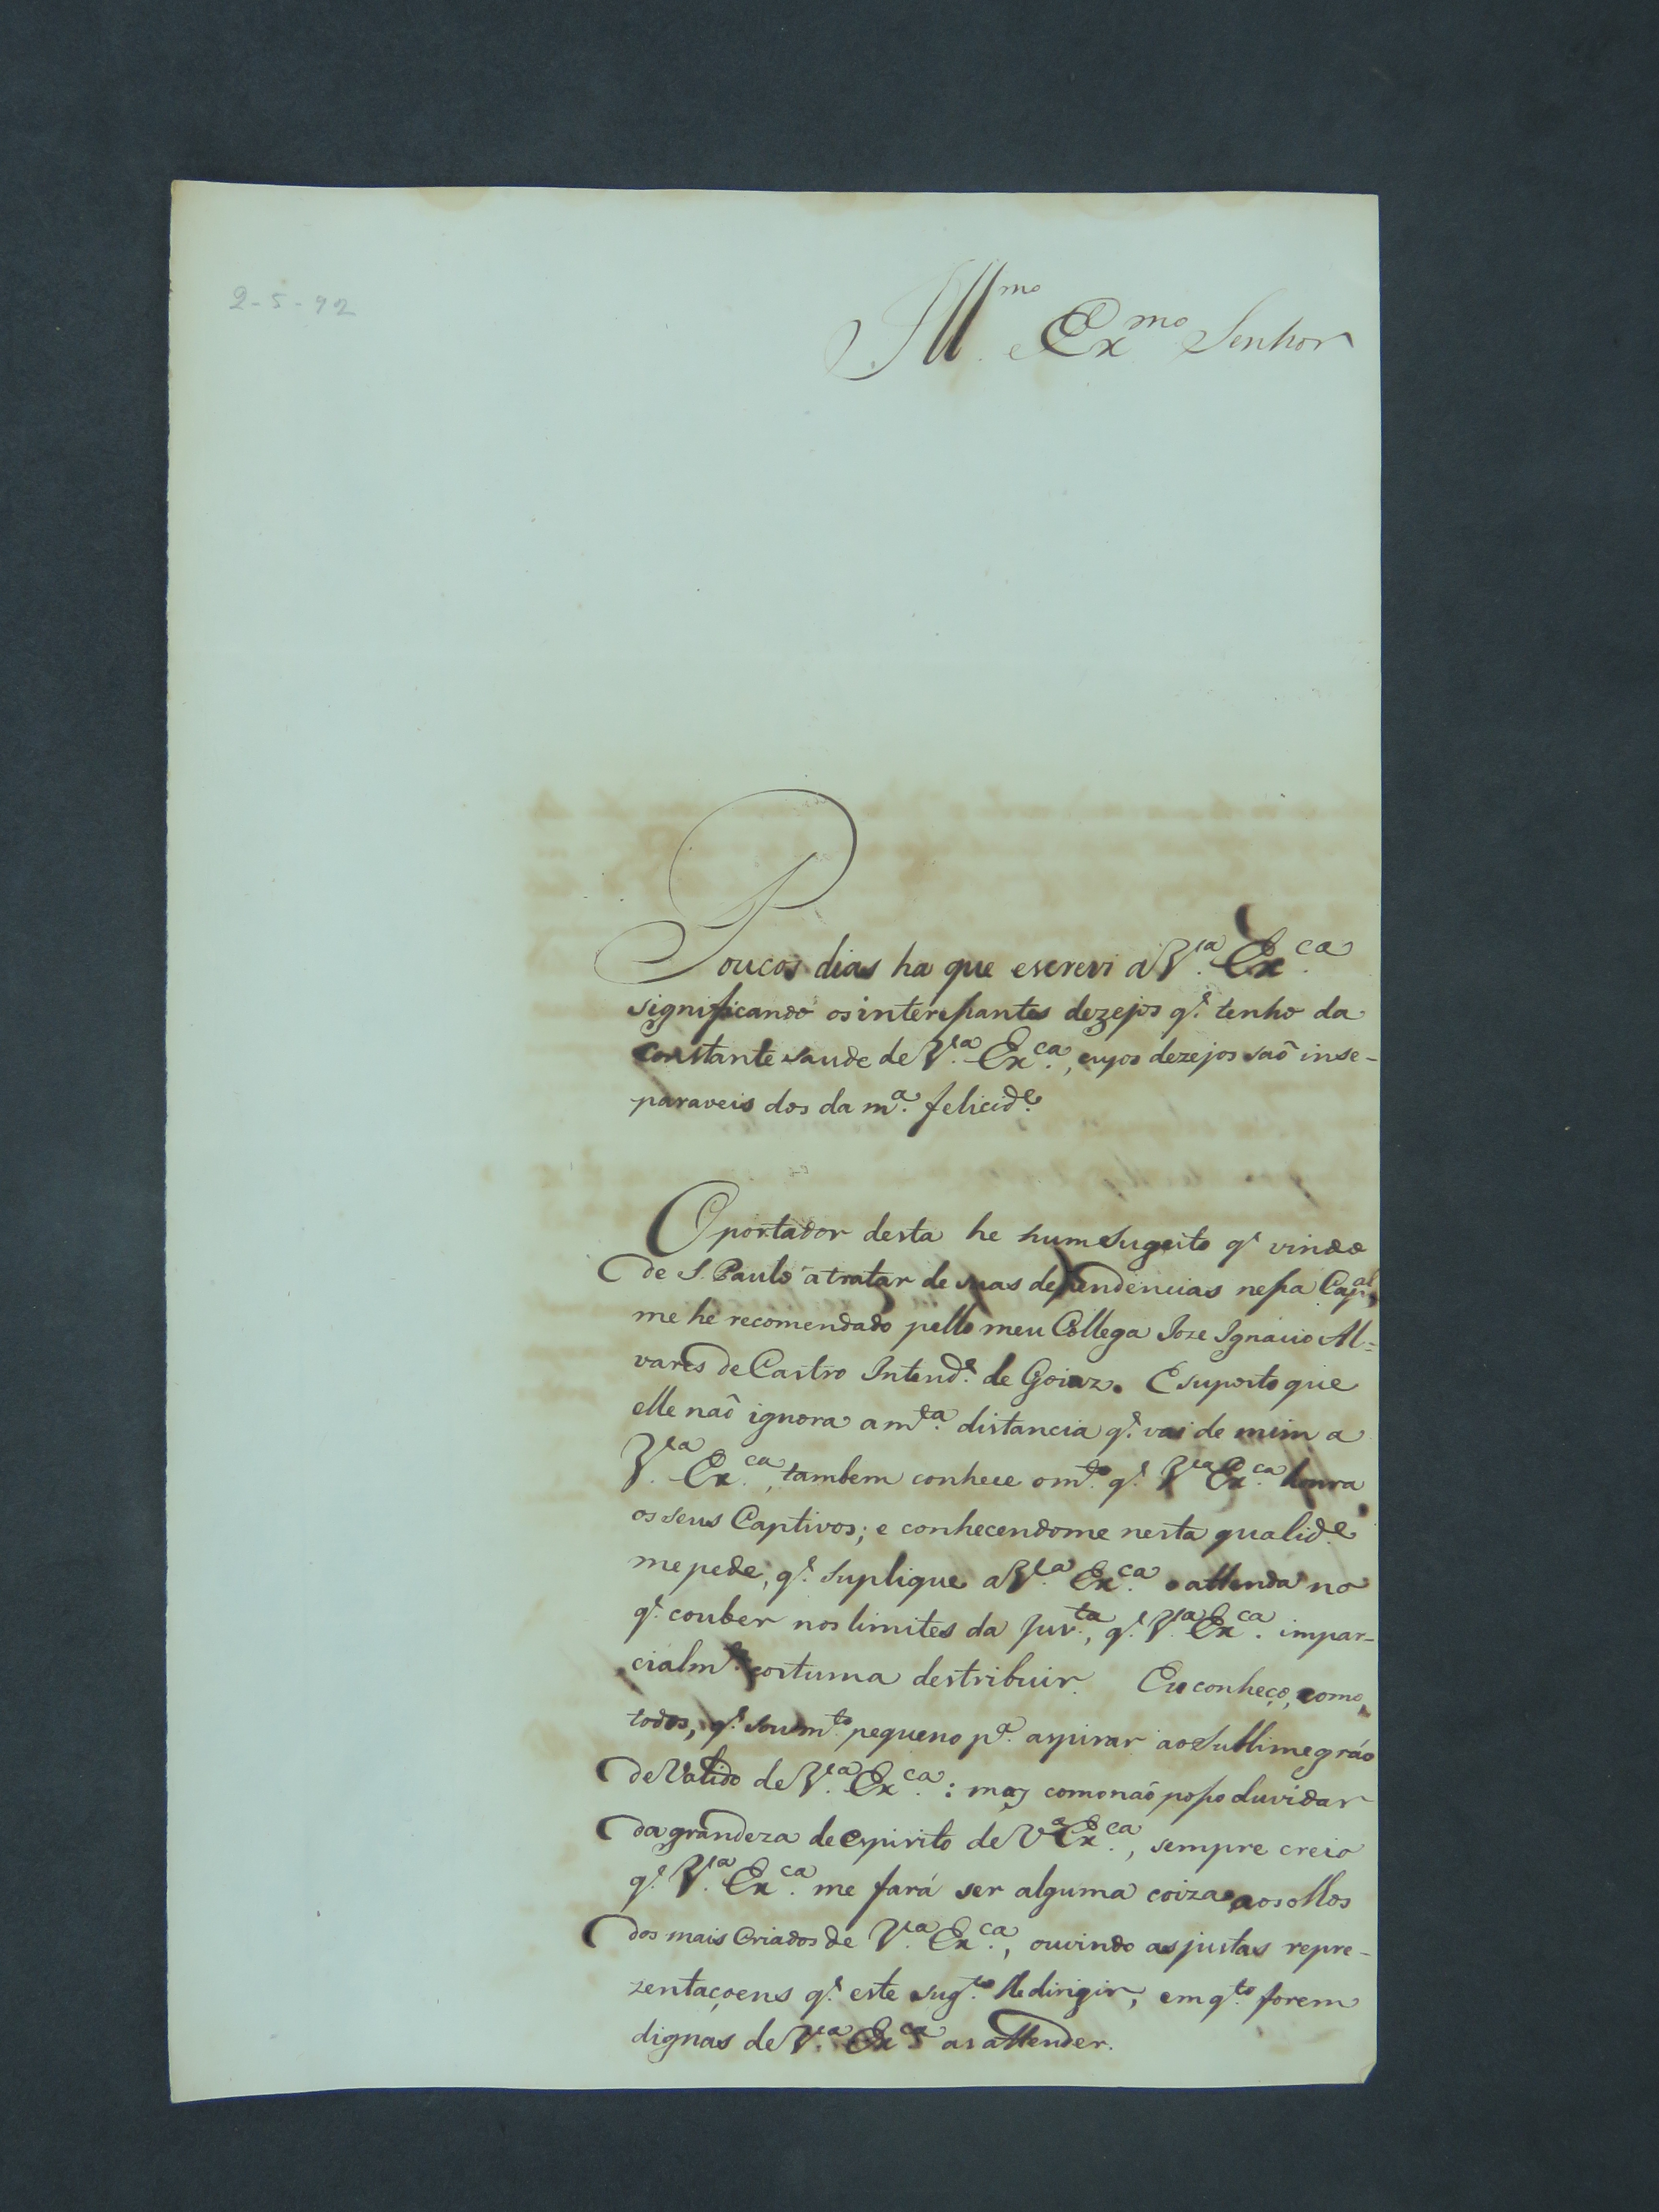 2-5-92
Ill.mo e Ex.mo Senhor
Poucos dias ha que escrevi a V.a Ex.ca
significando os interessantes dezejos q.e tenho da
constante saude de V.a Ex.ca, cujos dezejos saõ inse-
paraveis dos da m.a felicid.e
O portador desta he hum sugeito q.e vindo
de S. Paulo a tratar de suas dependencias nessa Cap.al,
me he recomendado pello meu Collega Joze Ignacio Al-
vares de Castro Intend.e de Goiaz. E suposto que
elle naõ ignora a m.ta distancia q.e vai de mim a
V.a Ex.ca, tambem conhece o m.to q.e V.a Ex.ca honra
os seus Captivos; e conhecendome nesta qualid.e
me pede, q.e suplique a V.a Ex.ca o attenda no
q.e couber nos limites da Jus.ta, q.e V.a Ex.ca impar-
cialm.te costuma destribuir. Eu conheço, como
todos, q.e sou m.to pequeno p.a aspirar ao Sublime gráo
de Valido de V.a Ex.ca: mas como naõ posso duvidar
da grandeza de espirito de V.a Ex.ca, sempre creio
q.e V.a Ex.ca me fará ser alguma coiza aos olhos
dos mais Criados de V.a Ex.ca, ouvindo as justas repre-
zentaçoens q.e este sug.to lhe dirigir, em q.to forem
dignas de V.a Ex.ca as attender.